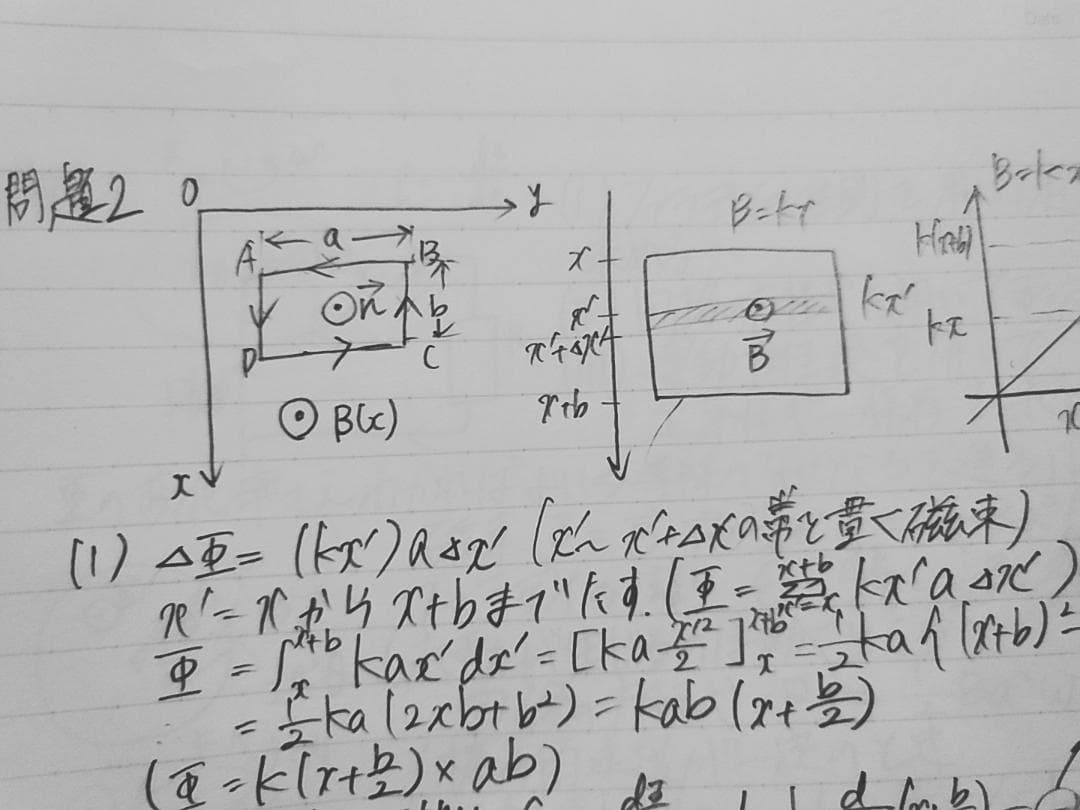 問題2
O
y
A
← a →
B
b
n
D
C
B(x)
x
B=kx
x
x'
x'+Δx'
x+b
kx'
B
B=kx
k(x+b)
kx
x
(1) ΔΦ = (kx')aΔx' (x'~x'+Δx'の帯を貫く磁束)
x'=xからx+bまでたす. (Φ = Σ_{x'=x}^{x+b} kx'aΔx')
Φ = ∫_x^{x+b} kax'dx' = [ka x'²/2]_x^{x+b} = 1/2 ka{(x+b)²-
= 1/2 ka(2xb+b²) = kab(x+b/2)
(Φ=k(x+b/2)×ab)